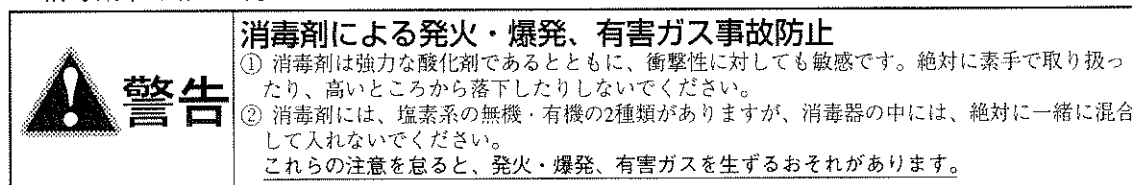 警告
消毒剤による発火・爆発、有害ガス事故防止
① 消毒剤は強力な酸化剤であるとともに、衝撃性に対しても敏感です。絶対に素手で取り扱っ
たり、高いところから落下したりしないでください。
② 消毒剤には、塩素系の無機・有機の2種類がありますが、消毒器の中には、絶対に一緒に混合
して入れないでください。
これらの注意を怠ると、発火・爆発、有害ガスを生ずるおそれがあります。